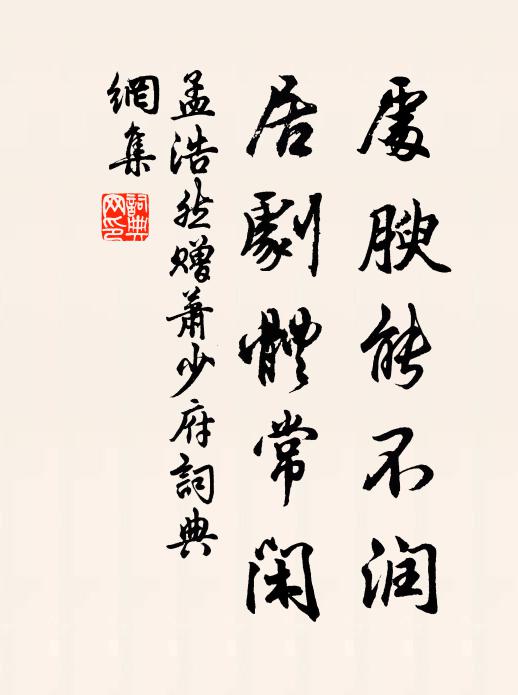 處腴能不润
居劇體常閑
孟浩然赠蕭少府詞典
網集
詞典
网印